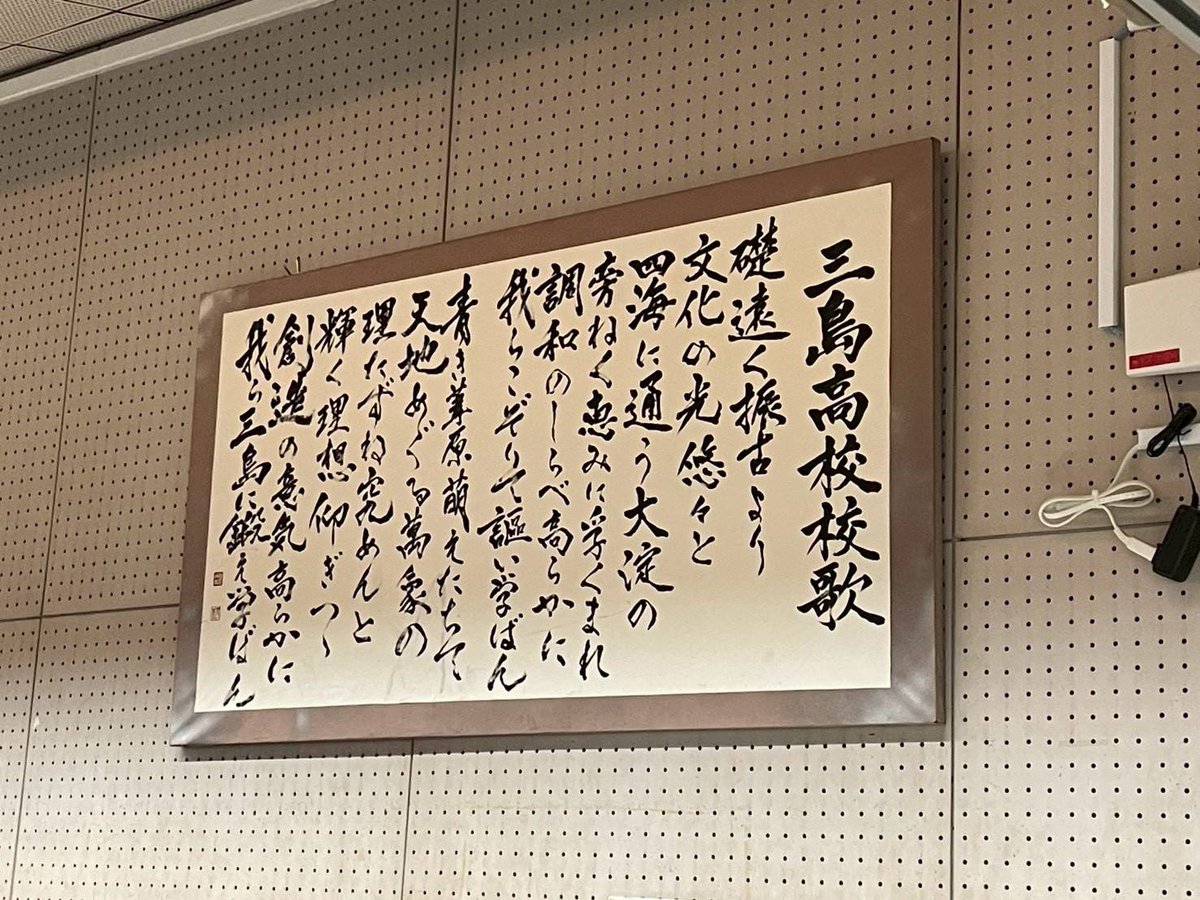 三島高校校歌
礎遠く振古より
文化の光悠々と
四海に通う大淀の
旁ねく恵みに孚くまれ
調和のしらべ高らかに
我らこぞりて謳い学ばん
青き葦原萌えたちて
天地めぐる萬象の
理たずね究めんと
輝く理想仰ぎつゝ
創造の意気高らかに
我ら三島に鍛え学ばん